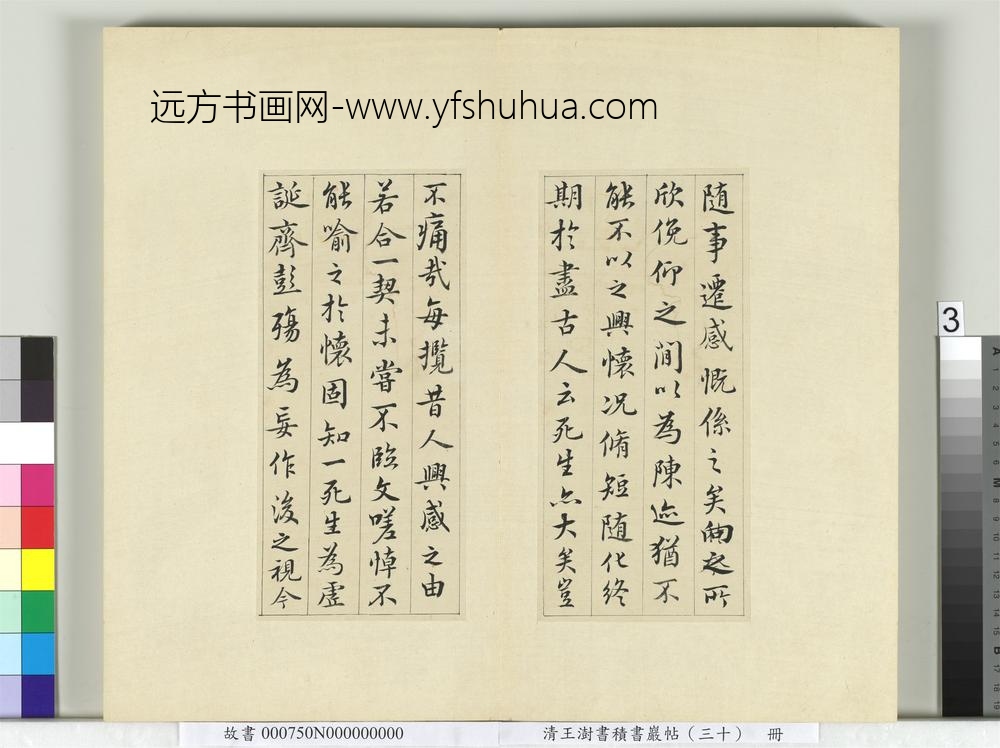 远方书画网-www.yfshuhua.com
随事遷感慨係之矣向之所
欣俛仰之閒以為陳迹猶不
能不以之興懷况脩短随化終
期於盡古人云死生亦大矣豈
不痛哉每攬昔人興感之由
若合一契未嘗不臨文嗟悼不
能喻之於懷固知一死生為虛
誕齊彭殤為妄作後之視今
3
故書 000750N000000000
清王澍書積書巖帖（三十） 冊